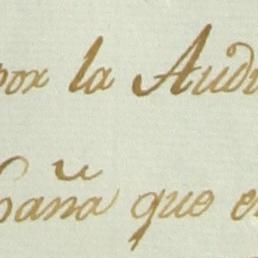 por la Audi
paña que e